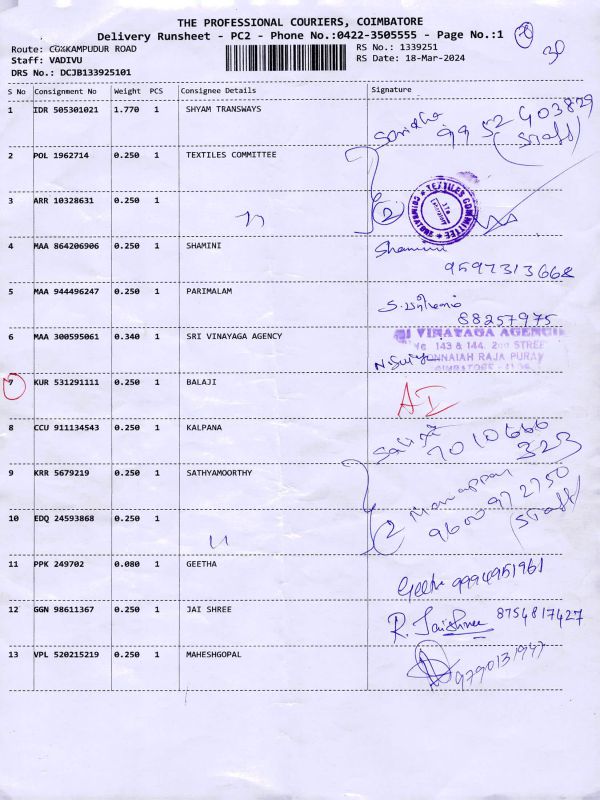 THE PROFESSIONAL COURIERS, COIMBATORE
Delivery Runsheet - PC2 - Phone No.:0422-3505555 - Page No.:1
30
Route: GOKKAMPUDUR ROAD RS No.: 1339251
Staff: VADIVU RS Date: 18-Mar-2024
DRS No.: DCJB133925101
S No Consignment No Weight PCS Consignee Details Signature
1 IDR 505301021 1.770 1 SHYAM TRANSWAYS
(staff)
2 POL 1962714 0.250 1 TEXTILES COMMITTEE
3 ARR 10328631 0.250 1 " 2
TEXTILES COMMITTEE COIMBATORE
4 MAA 864206906 0.250 1 SHAMINI Shamini
9597313668
5 MAA 944496247 0.250 1 PARIMALAM
88257975
6 MAA 300595061 0.340 1 SRI VINAYAGA AGENCY VINAYAGA AGENCI
143 & 144, 2nd STREE
ONNAIAH RAJA PURAY
7 KUR 531291111 0.250 1 BALAJI AI
8 CCU 911134543 0.250 1 KALPANA
7010666
323
9 KRR 5679219 0.250 1 SATHYAMOORTHY
2
9600972750
10 EDQ 24593868 0.250 1 " (staff)
11 PPK 249702 0.080 1 GEETHA Geetha 9994951961
12 GGN 98611367 0.250 1 JAI SHREE R. Jaishree 8754817427
13 VPL 520215219 0.250 1 MAHESHGOPAL 9790131947